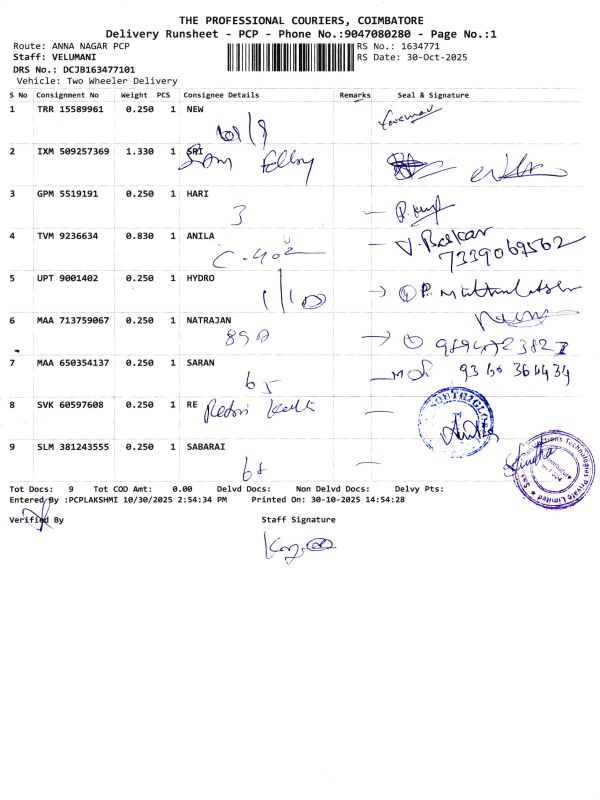 THE PROFESSIONAL COURIERS, COIMBATORE
Delivery Runsheet - PCP - Phone No.:9047080280 - Page No.:1
Route: ANNA NAGAR PCP RS No.: 1634771
Staff: VELUMANI RS Date: 30-Oct-2025
DRS No.: DCJB163477101
Vehicle: Two Wheeler Delivery
S No Consignment No Weight PCS Consignee Details Remarks Seal & Signature
1 TRR 15589961 0.250 1 NEW
2 IXM 509257369 1.330 1 SRI
3 GPM 5519191 0.250 1 HARI
3
4 TVM 9236634 0.830 1 ANILA
C-402 V. Baskar
7339069562
5 UPT 9001402 0.250 1 HYDRO
6 MAA 713759067 0.250 1 NATRAJAN
7 MAA 650354137 0.250 1 SARAN
65
8 SVK 60597608 0.250 1 RE
9 SLM 381243555 0.250 1 SABARAI
68
Tot Docs: 9 Tot COD Amt: 0.00 Delvd Docs: Non Delvd Docs: Delvy Pts:
Entered By :PCPLAKSHMI 10/30/2025 2:54:34 PM Printed On: 30-10-2025 14:54:28
Verified By Staff Signature